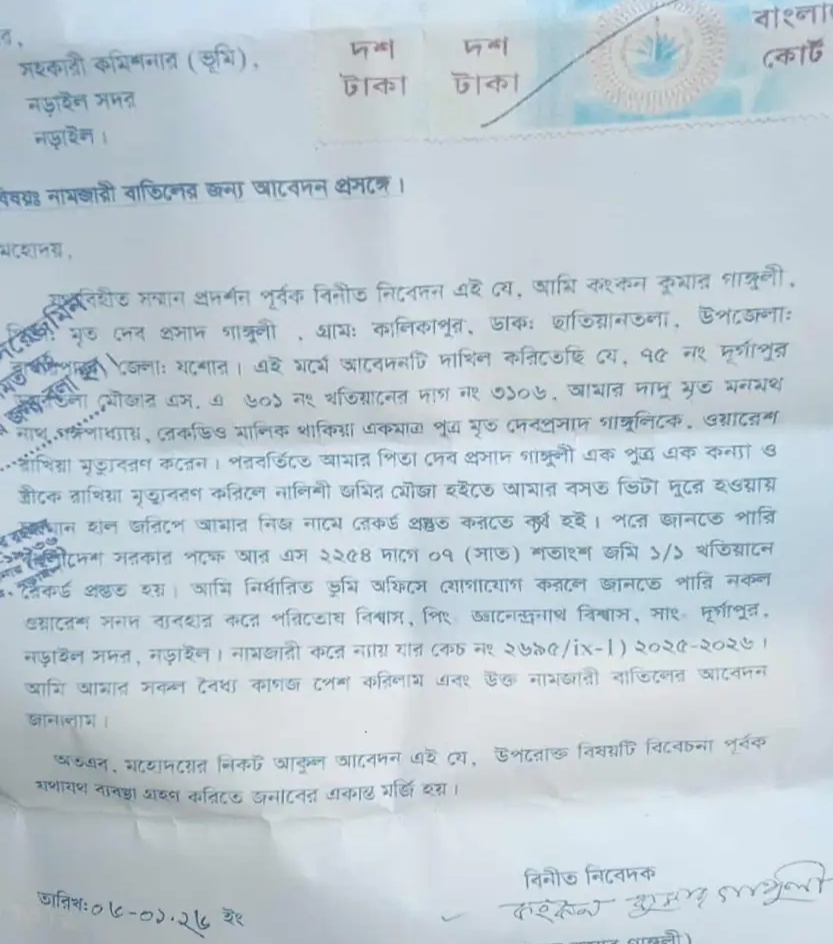 বাংলা
দশ দশ
টাকা টাকা
কোর্ট
সহকারী কমিশনার (ভূমি),
নড়াইল সদর
নড়াইল।
বিষয়ঃ নামজারী বাতিলের জন্য আবেদন প্রসঙ্গে।
মহোদয়,
যথাবিহীত সম্মান প্রদর্শন পূর্বক বিনীত নিবেদন এই যে, আমি কংকন কুমার গাঙ্গুলী,
মৃত দেব প্রসাদ গাঙ্গুলী , গ্রাম: কালিকাপুর, ডাক: ছাতিয়ানতলা, উপজেলা:
জেলা: যশোর। এই মর্মে আবেদনটি দাখিল করিতেছি যে, ৭৫ নং দূর্গাপুর
মৌজার এস, এ ৬০১ নং খতিয়ানের দাগ নং ৩১০৬, আমার দাদু মৃত মনমথ
নাথ গঙ্গপাধ্যায়, রেকডিও মালিক থাকিয়া একমাত্র পুত্র মৃত দেবপ্রসাদ গাঙ্গুলিকে, ওয়ারেশ
রাখিয়া মৃত্যুবরণ করেন। পরবর্তিতে আমার পিতা দেব প্রসাদ গাঙ্গুলী এক পুত্র এক কন্যা ও
স্ত্রীকে রাখিয়া মৃত্যুবরণ করিলে নালিশী জমির মৌজা হইতে আমার বসত ভিটা দূরে হওয়ায়
হাল জরিপে আমার নিজ নামে রেকর্ড প্রস্তুত করতে ব্যর্থ হই। পরে জানতে পারি
সরকার পক্ষে আর এস ২২৫৪ দাগে ০৭ (সাত) শতাংশ জমি ১/১ খতিয়ানে
রেকর্ড প্রস্তুত হয়। আমি নির্ধারিত ভূমি অফিসে যোগাযোগ করলে জানতে পারি নকল
ওয়ারেশ সনদ ব্যবহার করে পরিতোষ বিশ্বাস, পিং জ্ঞানেন্দ্রনাথ বিশ্বাস, সাং- দূর্গাপুর,
নড়াইল সদর, নড়াইল। নামজারী করে ন্যায় যার কেচ নং ২৬৯৫/ix-1) ২০২৫-২০২৬।
আমি আমার সকল বৈধ্য কাগজ পেশ করিলাম এবং উক্ত নামজারী বাতিলের আবেদন
জানালাম।
অতএব, মহোদয়ের নিকট আকুল আবেদন এই যে, উপরোক্ত বিষয়টি বিবেচনা পূর্বক
যথাযথ ব্যবস্থা গ্রহণ করিতে জনাবের একান্ত মর্জি হয়।
বিনীত নিবেদক
কংকন কুমার গাঙ্গুলী
তারিখ: ০৮-০১.২৬ ইং